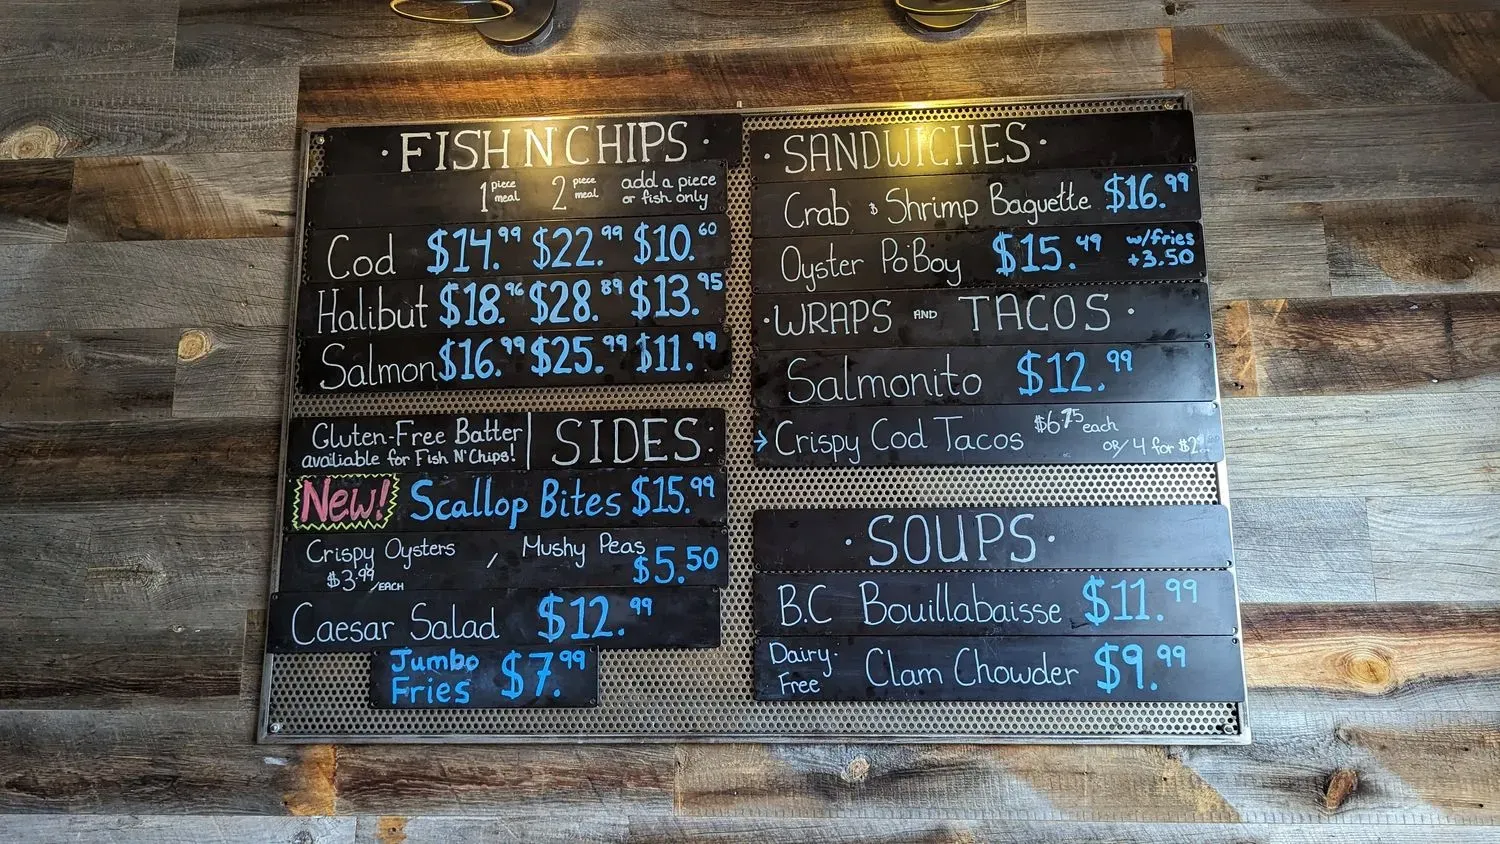 · FISH N' CHIPS ·
1 piece meal 2 piece meal add a piece or fish only
Cod $14.99 $22.99 $10.60
Halibut $18.96 $28.89 $13.95
Salmon $16.99 $25.99 $11.99
Gluten-Free Batter
available for Fish N' Chips!
SIDES:
New! Scallop Bites $15.99
Crispy Oysters / Mushy Peas
$3.99/EACH $5.50
Caesar Salad $12.99
Jumbo
Fries $7.99
· SANDWICHES ·
Crab & Shrimp Baguette $16.99
Oyster Po'Boy $15.49 w/fries
+3.50
· WRAPS AND TACOS ·
Salmonito $12.99
→ Crispy Cod Tacos $6.75 each
OR/ 4 for
· SOUPS ·
B.C Bouillabaisse $11.99
Dairy-
Free Clam Chowder $9.99